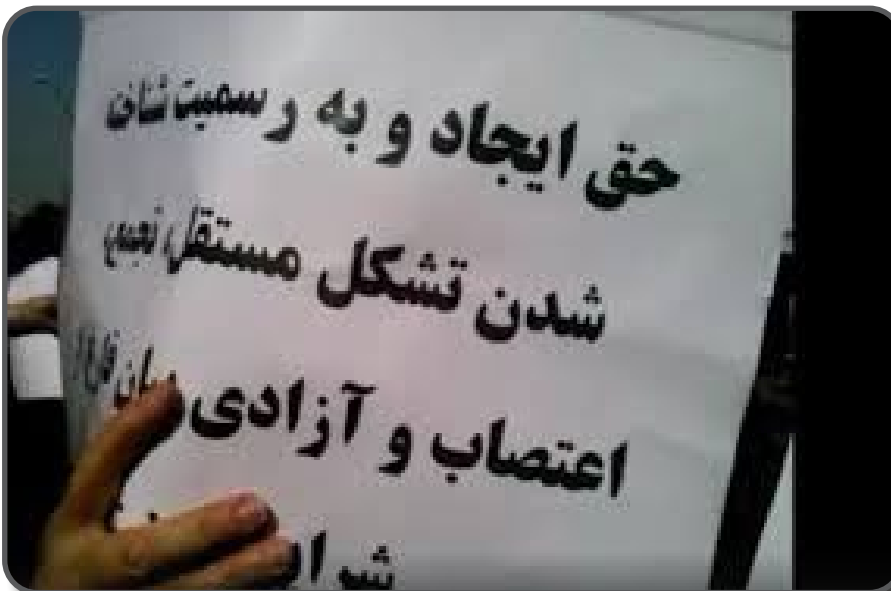 حق ایجاد و به رسمیت شناخ
شدن تشکل مستقل، تجمع،
اعتصاب و آزادی بیان